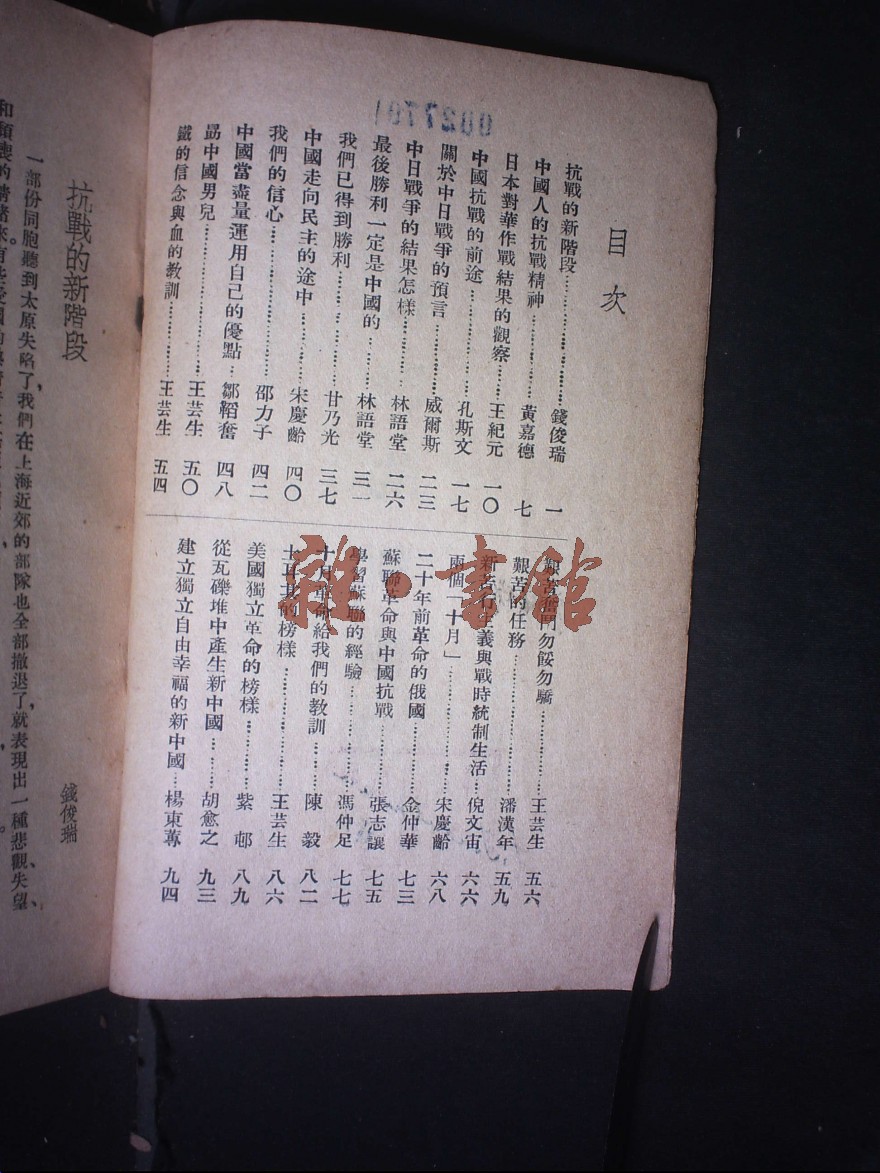 0027701
目次
抗戰的新階段……………錢俊瑞 一
中國人的抗戰精神……………黃嘉德 七
日本對華作戰結果的觀察……王紀元 一〇
中國抗戰的前途……………孔斯文 一七
關於中日戰爭的預言……威爾斯 二三
中日戰爭的結果怎樣……林語堂 二六
最後勝利一定是中國的……林語堂 三一
我們已得到勝利……………甘乃光 三七
中國走向民主的途中……宋慶齡 四〇
我們的信心……………邵力子 四二
中國當盡量運用自己的優點…鄒韜奮 四八
勗中國男兒……………王芸生 五〇
鐵的信念與血的教訓……王芸生 五四
艱苦 勿餒勿驕……………王芸生 五六
艱苦的任務……………潘漢年 五九
新 主義與戰時統制生活……倪文宙 六六
兩個「十月」……………宋慶齡 六八
二十年前革命的俄國……金仲華 七三
蘇聯革命與中國抗戰……張志讓 七五
學習蘇聯的經驗……………馮仲足 七七
十月革命給我們的教訓……陳毅 八二
土耳其的榜樣……………王芸生 八六
美國獨立革命的榜樣……紫邨 八九
從瓦礫堆中產生新中國……胡愈之 九三
建立獨立自由幸福的新中國…楊東蓴 九四
雜·書館
抗戰的新階段
錢俊瑞
一部份同胞聽到太原失陷了，我們在上海近郊的部隊也全部撤退了，就表現出一種悲觀、失望、
和頹喪的情緒來。